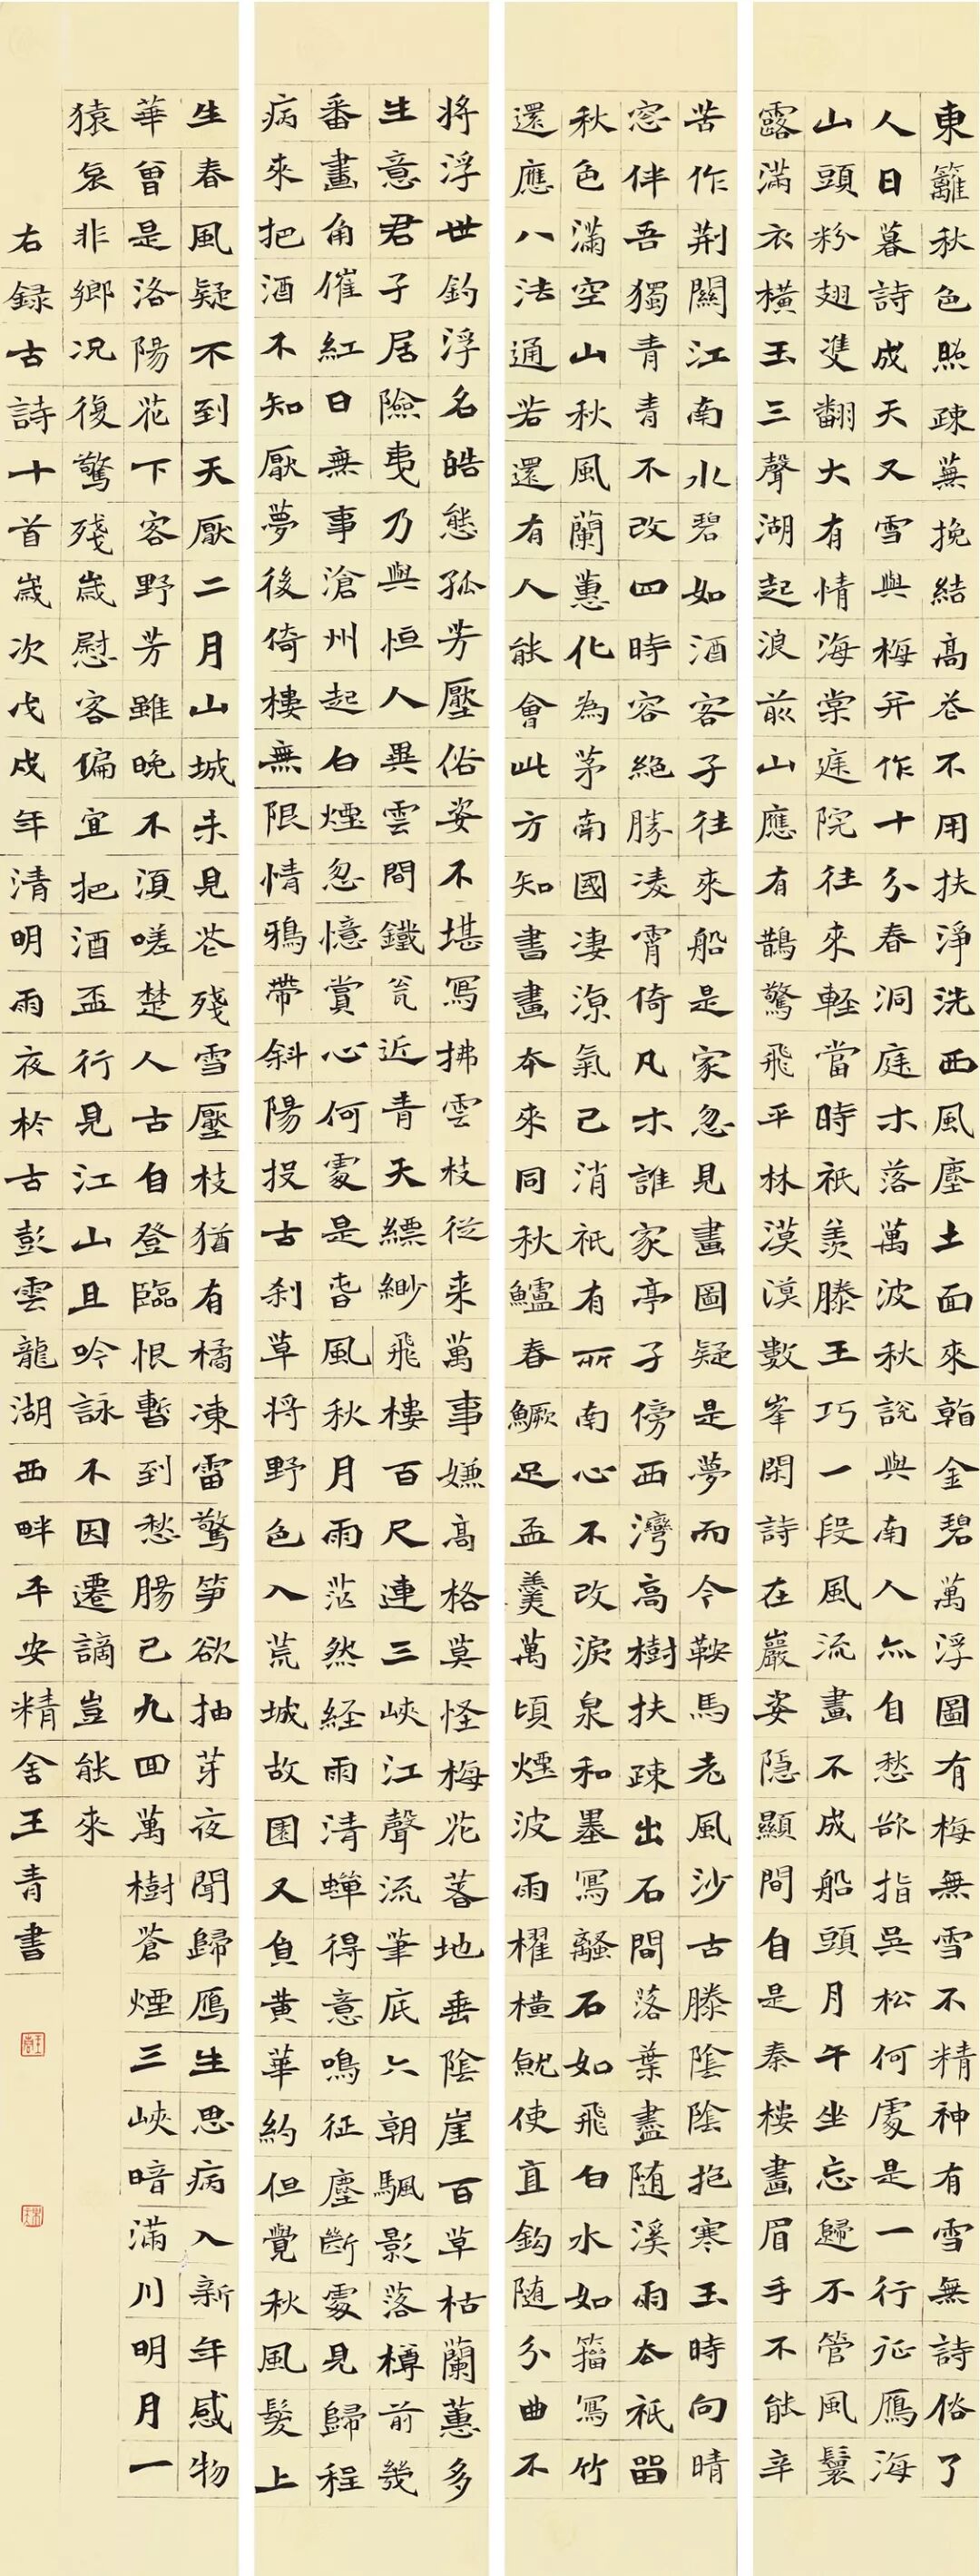 東籬秋色照疎蕪挽結高花不用扶淨洗西風塵土面來看金碧萬浮圖有梅無雪不精神有雪無詩俗了
人日暮詩成天又雪與梅并作十分春洞庭木落萬波秋說與南人亦自愁欲指吳松何處是一行征鴈海
山頭粉翅雙翻大有情海棠庭院往來輕當時祇羨滕王巧一段風流畫不成船頭月午坐忘歸不管風鬟
露滿衣橫玉三聲湖起浪前山應有鵲驚飛平林漠漠數峯閑詩在巖姿隱顯間自是秦樓畫眉手不能辛
苦作荆關江南水碧如酒客子往來船是家忽見畫圖疑是夢而今鞍馬老風沙古滕陰陰抱寒玉時向晴
窓伴吾獨青青不改四時容絕勝凌霄倚凡木誰家亭子傍西灣高樹扶疎出石間落葉盡随溪雨去祇留
秋色滿空山秋風蘭蕙化為茅南國凄涼氣已消祇有所南心不改淚泉和墨寫離騷石如飛白水如籀寫竹
還應八法通若還有人能會此方知書畫本來同秋鱸春鱖足盃羹萬頃煙波雨櫂橫就使直鈎随分曲不
將浮世釣浮名皓態孤芳壓俗姿不堪寫拂雲枝從来萬事嫌高格莫怪梅花落地垂陰崖百草枯蘭蕙多
生意君子居險夷乃與恒人異雲間鐵瓮近青天縹緲飛樓百尺連三峽江聲流筆底六朝颿影落樽前幾
番畫角催紅日無事滄州起白煙忽憶賞心何處是春風秋月雨茫然経雨清蟬得意鳴征塵斷處見歸程
病來把酒不知厭夢後倚樓無限情鴉帶斜陽投古刹草將野色入荒城故園又負黄華約但覺秋風髮上
生春風疑不到天厭二月山城未見花殘雪壓枝猶有橘凍雷驚笋欲抽芽夜聞歸鴈生思病入新年感物
華曾是洛陽花下客野芳雖晚不須嗟楚人古自登臨恨暫到愁腸已九回萬樹蒼煙三峽暗滿川明月一
猿哀非鄉况復驚殘歲慰客偏宜把酒盃行見江山且吟詠不因遷謫豈能來
右録古詩十首歲次戊戌年清明雨夜於古彭雲龍湖西畔平安精舍王青書